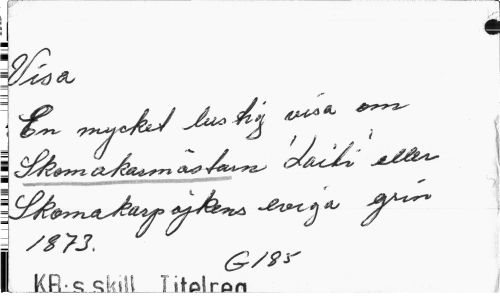 Visa
En mycket lustig visa om
Skomakarmästarn 'Laihi' eller
Skomakarpojkens eviga grin
1873.
G 185
KB:s skill. Titelreg